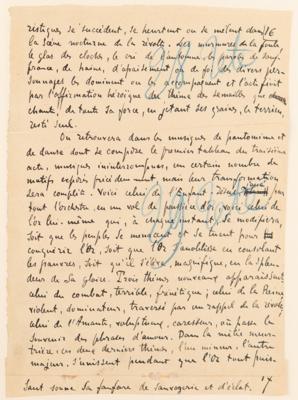 ristiques, se succèdent, se heurtent ou se mêlent dans 16
la scène nocturne de la révolte. Les murmures de la foule
le glas des cloches, le cri de l'automne, les paroles de souf-
france, de haine, d'apaisement ou de foi des divers per-
sonnages les dominent ou les accompagnent et l'acte finit
par l'affirmation héroïque du thème des semailles que
chante, de toute sa force, en jetant ses grains, le terrien,
resté seul.
On retrouvera dans les musiques de pantomime et
de danse dont se compose le premier tableau du troisième
acte, musiques ininterrompues, un certain nombre de
motifs exposés précédemment, mais leur transformation
sera complète. Voici celui de l'enfant
tout l'orchestre en un vol de voici celui de
l'or lui-même qui, à chaque instant, se modifiera,
soit que les peuples se menacent et se tuent pour
conquérir l'or, soit que l'or anoblisse en consolant
les pauvres, soit qu'il s'élève, magnifique, en la splen-
deur de sa gloire. Trois thèmes nouveaux apparaissent,
celui du combat, terrible, frénétique ; celui de la Reine
violent, dominateur, traversé par un rappel de la révolte,
celui de l'Amante, voluptueux, caresseur, où passe le
souvenir des phrases d'amour. Dans la mêlée meur-
trière, ces deux derniers thèmes, l'un mineur, l'autre
majeur, s'unissent pendant que l'Or tout puis-
sant sonne sa fanfare de sauvagerie et d'éclat. 17